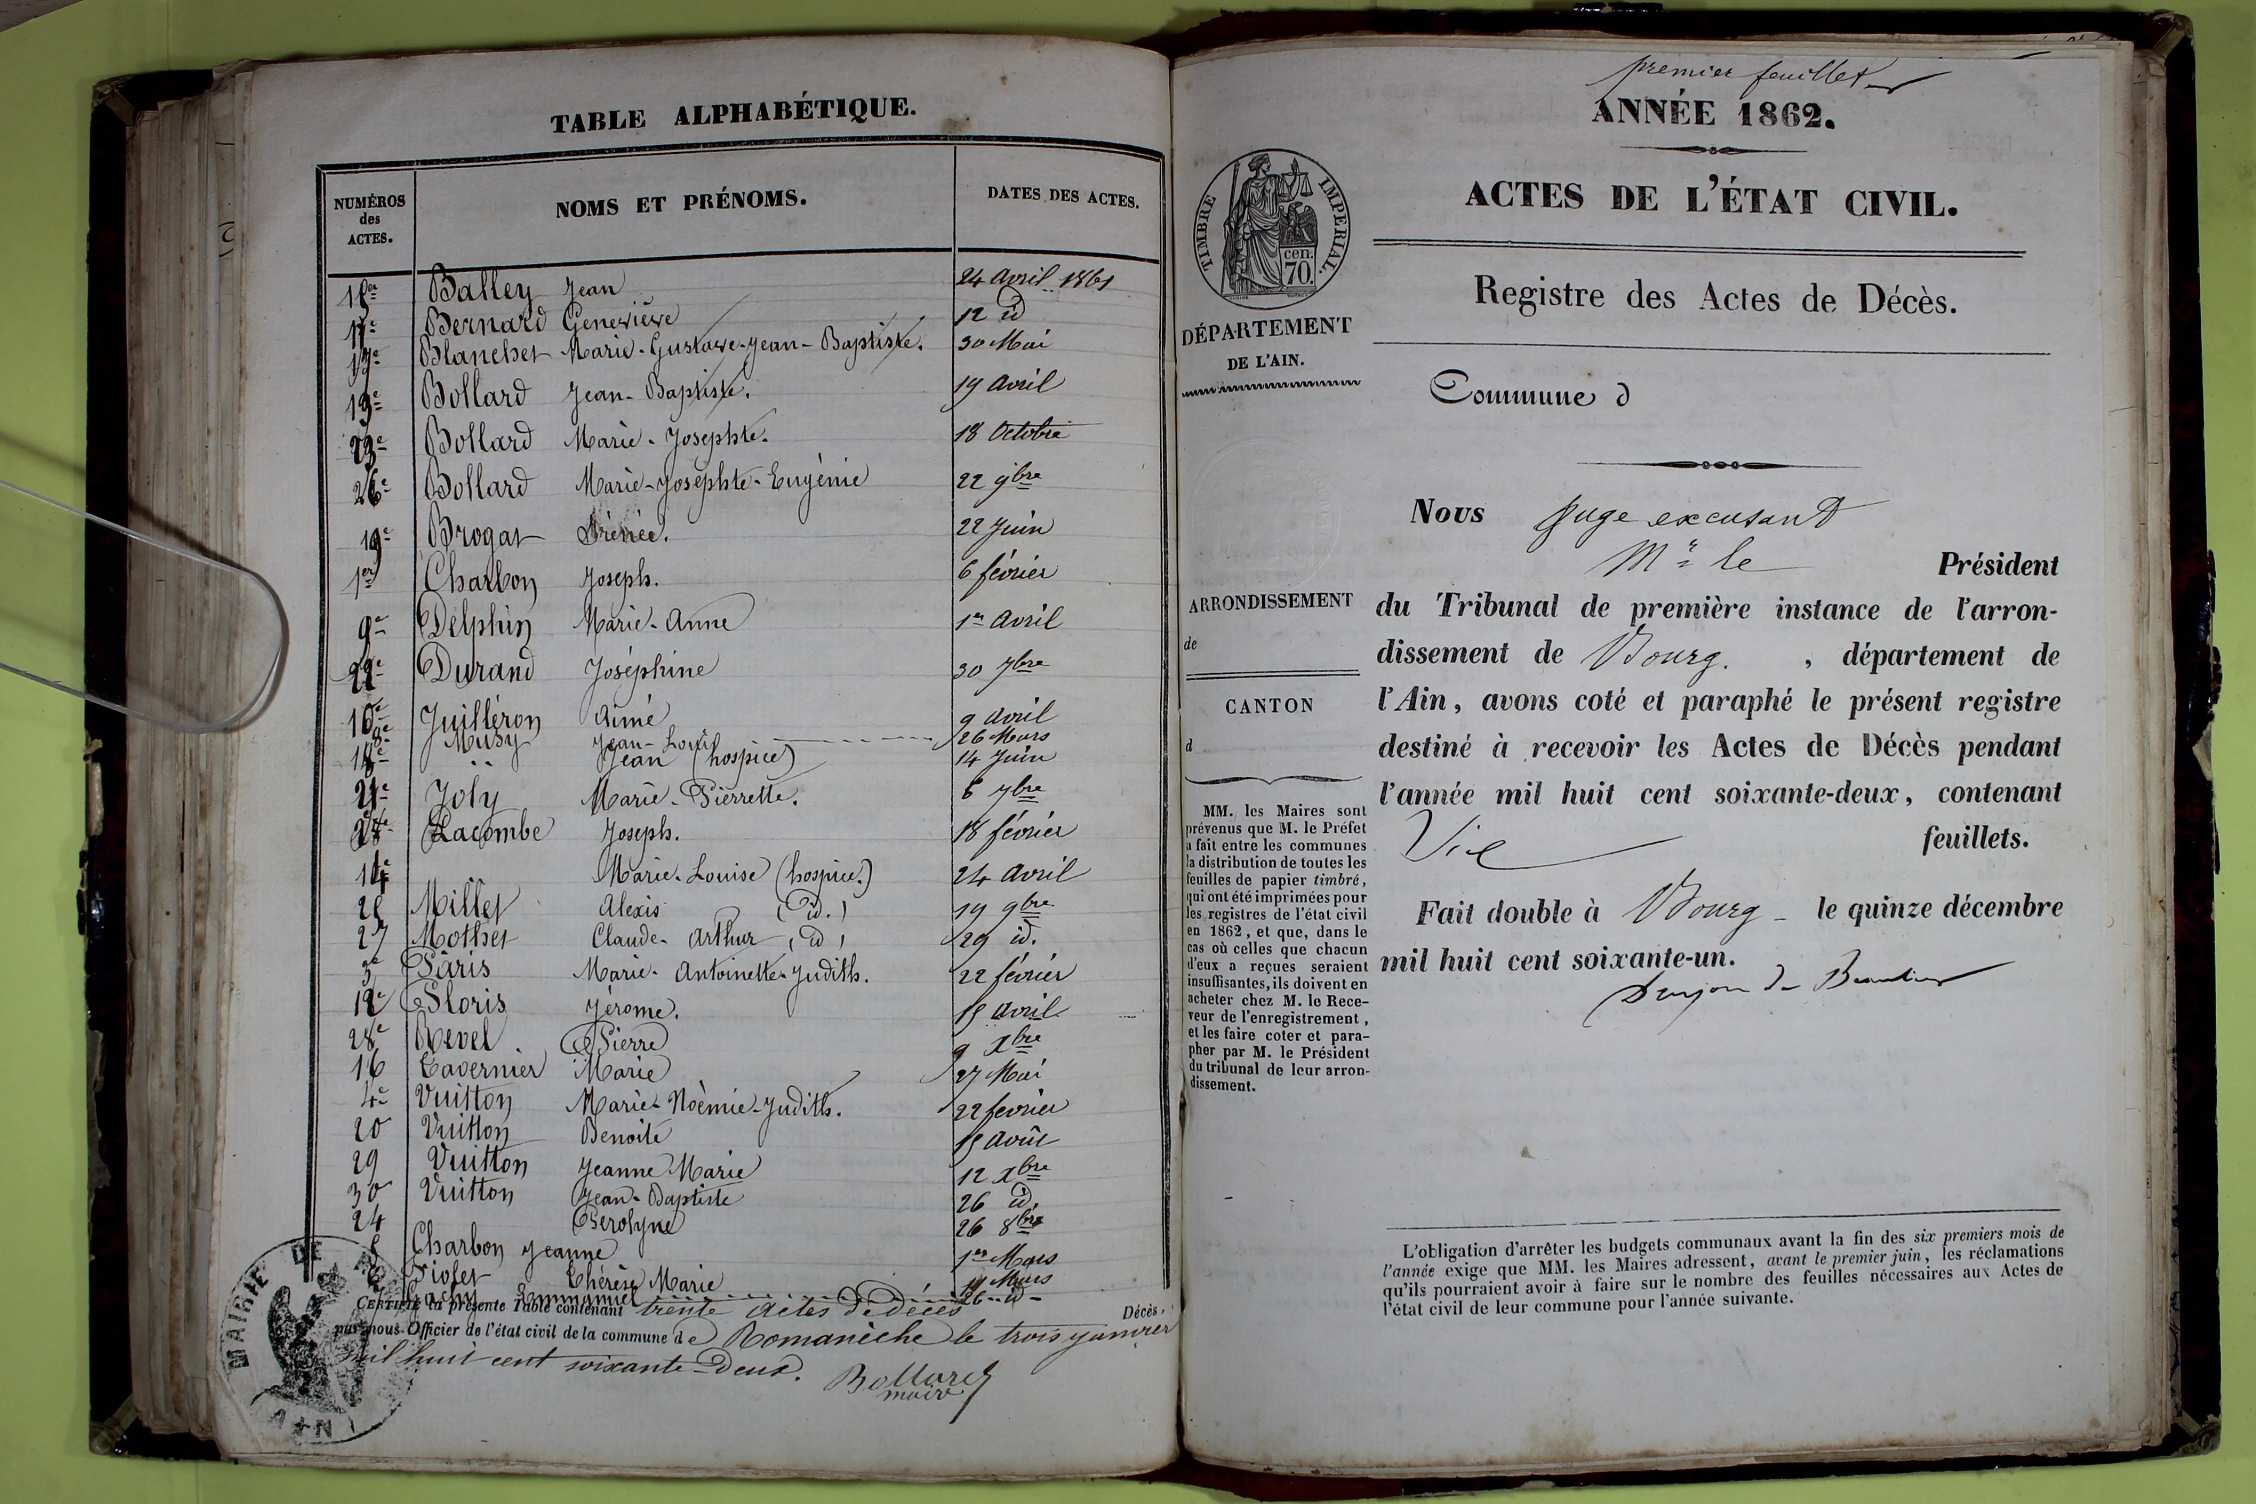 TABLE ALPHABÉTIQUE.
NUMÉROS des ACTES. NOMS ET PRÉNOMS. DATES DES ACTES.
Balley Jean 24 avril 1861
Bernard Geneviève 12 id
Blanchet Marie-Gustave-Jean-Baptiste. 30 Mai
Bollard Jean-Baptiste. 19 avril
23e Bollard Marie-Josephte. 18 Octobre
26e Bollard Marie-Josephte-Eugénie 22 9bre
19e Brogat Irénée. 22 Juin
1er Charbon Joseph. 6 février
9e Delphin Marie-Anne 1er avril
22e Durand Joséphine 30 7bre
10e Juilléron Aimé 9 avril
8e Musy Jean-Louis 26 Mars
18e Jean (hospice) 14 Juin
21e Joly Marie-Pierrette. 6 7bre
Lacombe Joseph. 18 février
14e Marie-Louise (hospice.) 24 avril
25 Millet Alexis (id.) 19 9bre
27 Mothet Claude-Arthur (id) 29 id.
3e Pâris Marie-Antoinette-Judith. 22 février
12e Ploris Jérome. 15 avril
28e Revel Pierre 9 Xbre
16 Tavernier Marie 27 Mai
4e Vuitton Marie-Noèmie-Judith. 22 fevrier
20 Vuitton Benoite 15 août
29 Vuitton Jeanne Marie 12 Xbre
30 Vuitton Jean-Baptiste 26 id.
24 Pérolyne 26 8bre
5 Charbon Jeanne 1er Mars
Piolet Thérèse Marie Mars
Emmanuel 26 id
CERTIFIÉ la présente Table contenant trente actes de décès Décès,
par nous Officier de l'état civil de la commune de Romanèche le trois janvier
mil huit cent soixante-deux.
Bollard
maire
MAIRIE DE
AIN
premier feuillet
ANNÉE 1862.
ACTES DE L'ÉTAT CIVIL.
TIMBRE IMPERIAL.
cen.
70.
Registre des Actes de Décès.
DÉPARTEMENT
DE L'AIN.
Commune d
Nous Juge excusant
Mr le Président
ARRONDISSEMENT
de
CANTON
d
du Tribunal de première instance de l'arron-
dissement de Bourg. , département de
l'Ain, avons coté et paraphé le présent registre
destiné à recevoir les Actes de Décès pendant
l'année mil huit cent soixante-deux, contenant
feuillets.
Fait double à Bourg - le quinze décembre
mil huit cent soixante-un.
MM. les Maires sont
prévenus que M. le Préfet
a fait entre les communes
la distribution de toutes les
feuilles de papier timbré,
qui ont été imprimées pour
les registres de l'état civil
en 1862, et que, dans le
cas où celles que chacun
d'eux a reçues seraient
insuffisantes, ils doivent en
acheter chez M. le Rece-
veur de l'enregistrement,
et les faire coter et para-
pher par M. le Président
du tribunal de leur arron-
dissement.
L'obligation d'arrêter les budgets communaux avant la fin des six premiers mois de
l'année exige que MM. les Maires adressent, avant le premier juin, les réclamations
qu'ils pourraient avoir à faire sur le nombre des feuilles nécessaires aux Actes de
l'état civil de leur commune pour l'année suivante.